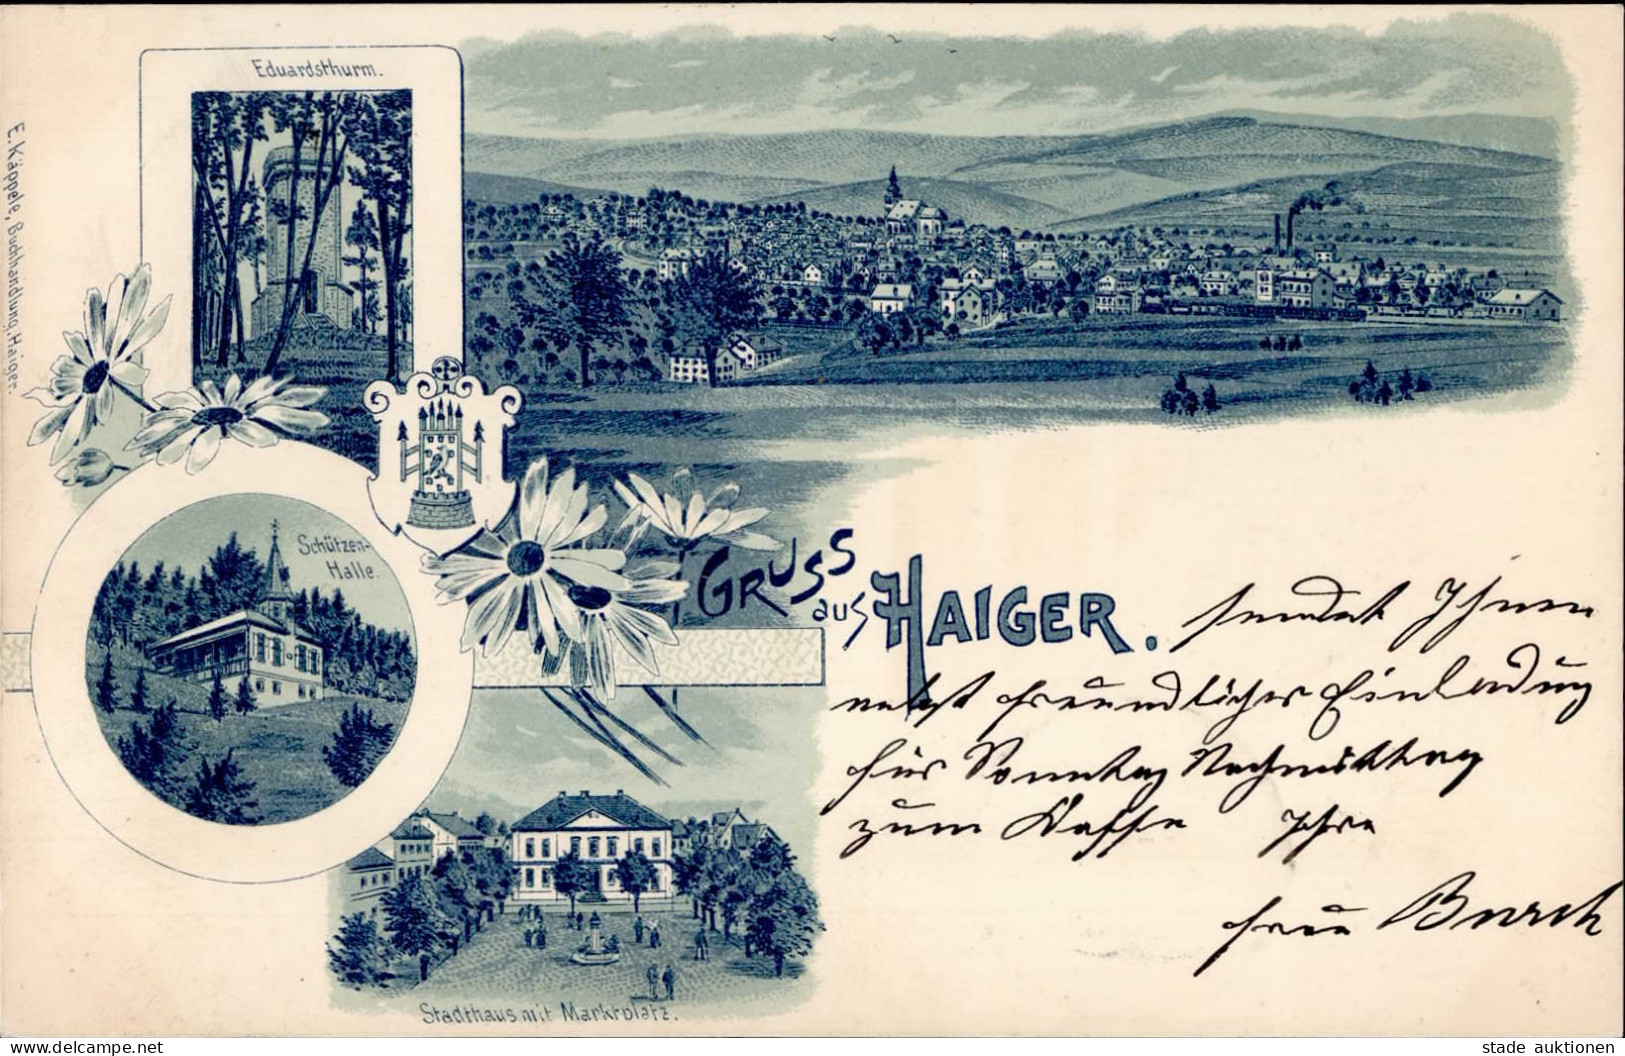 Eduardsthurm.
E. Käppele, Buchhandlung, Haiger.
Schützen-
Halle.
GRUSS
aus HAIGER.
sendet Ihnen
nebst freundlicher Einladung
für Sonntag Nachmittag
zum Kaffe Ihre
frau
Stadthaus mit Marktplatz.
www.delcampe.net
stade auktionen